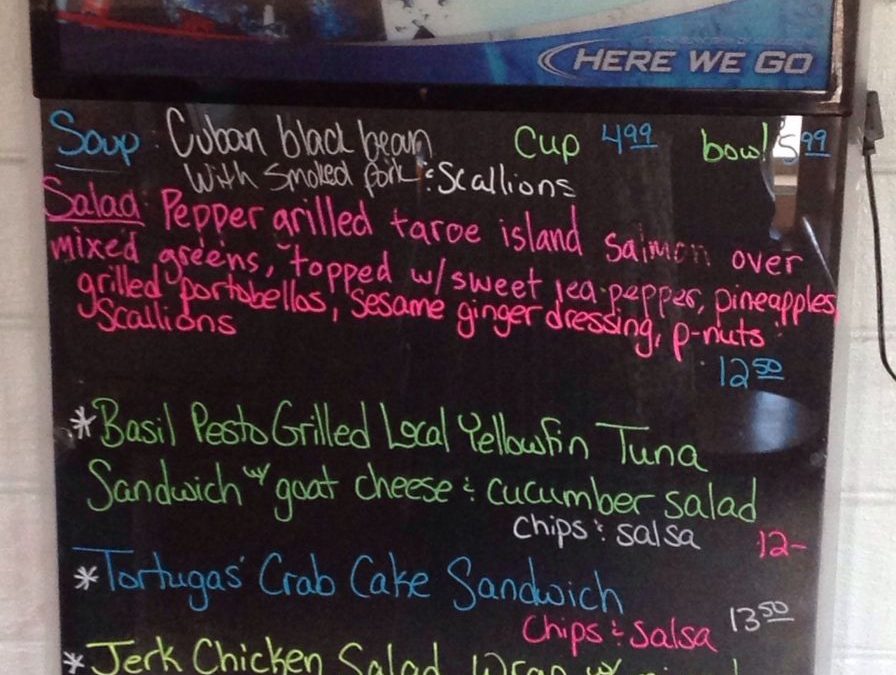 HERE WE GO
Soup: Cuban black bean Cup 4.99 bowl 5.99
With Smoked pork & Scallions
Salad: Pepper grilled taroe island Salmon over
mixed greens, topped w/ sweet pepper, pineapples,
grilled portobellos, Sesame ginger dressing, p-nuts &
Scallions
12 50
*Basil Pesto Grilled Local Yellowfin Tuna
Sandwich w/ goat cheese & cucumber salad
Chips & salsa 12-
*Tortugas' Crab Cake Sandwich
Chips & Salsa 13 50
*Jerk Chicken Salad Wrap w/